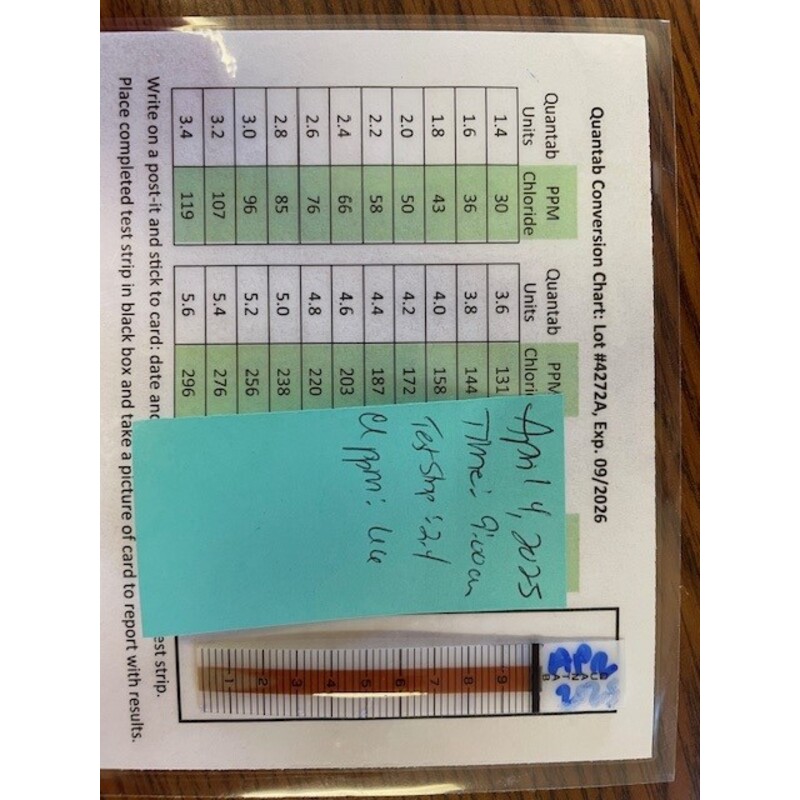 Quantab Conversion Chart: Lot #4272A, Exp. 09/2026
Quantab Units PPM Chloride
1.4 30
1.6 36
1.8 43
2.0 50
2.2 58
2.4 66
2.6 76
2.8 85
3.0 96
3.2 107
3.4 119
Quantab Units PPM Chlori
3.6 131
3.8 144
4.0 158
4.2 172
4.4 187
4.6 203
4.8 220
5.0 238
5.2 256
5.4 276
5.6 296
April 4, 2025
Time: 9:00am
Test Strip: 2.4
Cl ppm: 66
QUANTAB
9
8
7
6
5
4
3
2
1
Write on a post-it and stick to card: date and est strip.
Place completed test strip in black box and take a picture of card to report with results.